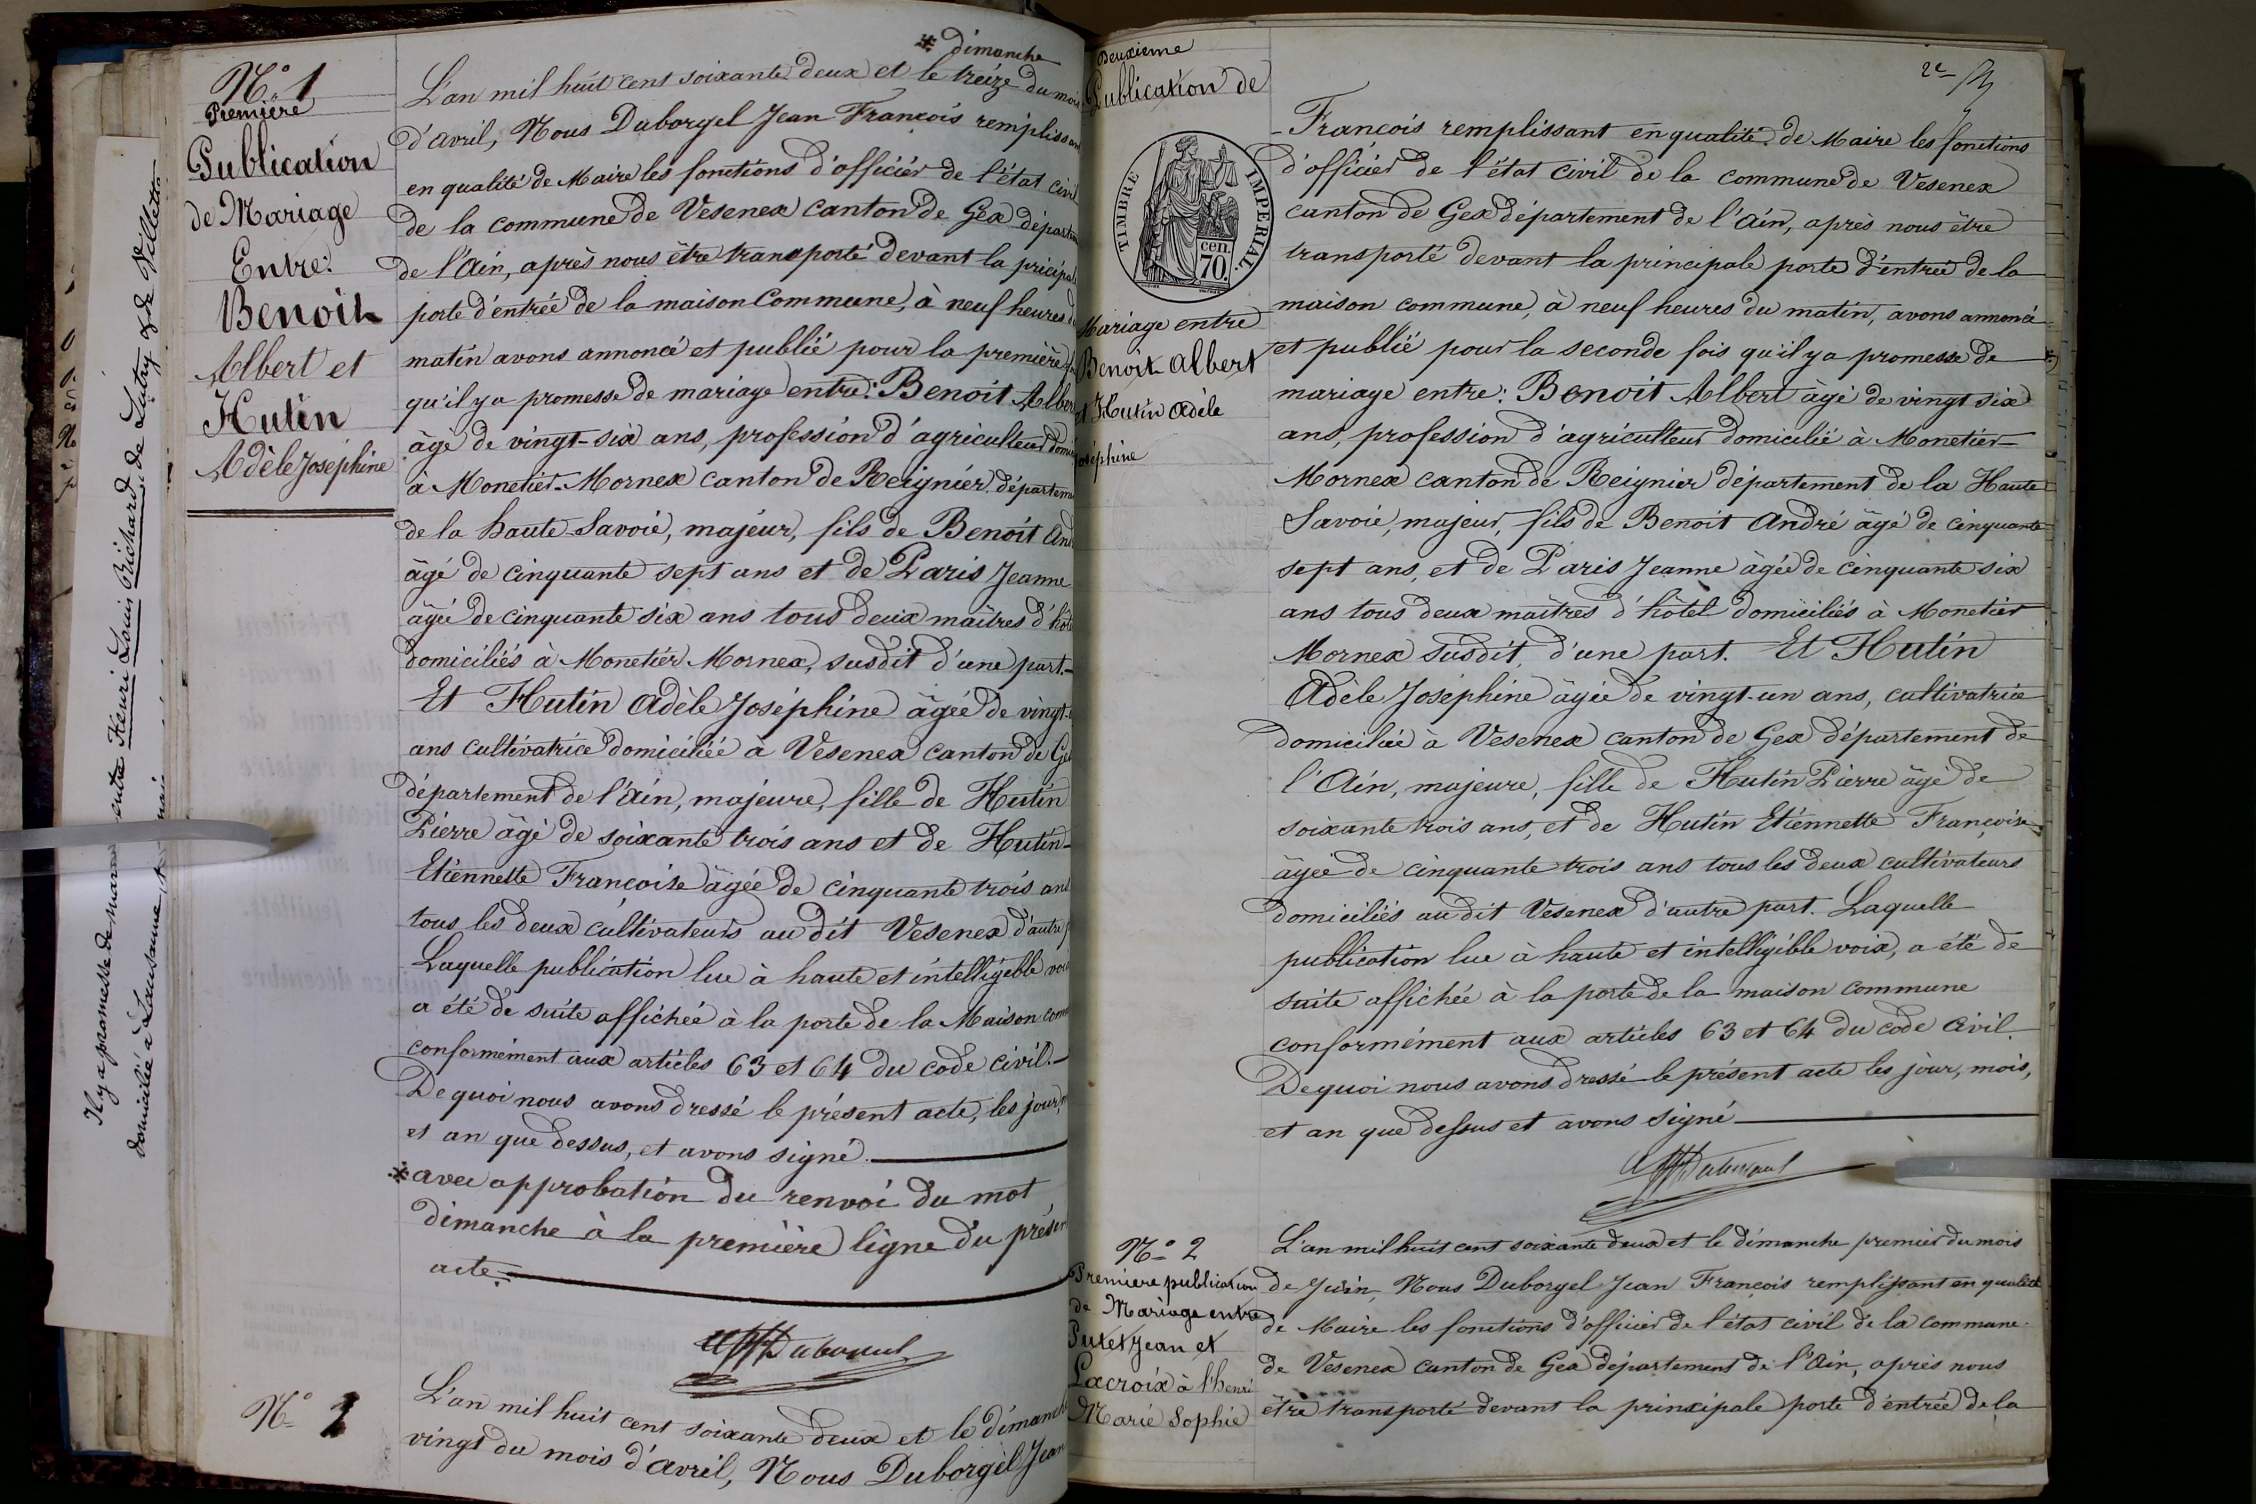 N.° 1
Première
Publication
de Mariage
Entre:
Benoit
Albert et
Hutin
Adèle Joséphine
* dimanche
L'an mil huit cent soixante deux et le treize du mois
d'avril, Nous Duborgel Jean François remplissant
en qualité de Maire les fonctions d'officier de l'état civil
de la commune de Vesenex canton de Gex départem
de l'Ain, après nous être transporté devant la pricipale
porte d'entrée de la maison Commune, à neuf heures du
matin avons annoncé et publié pour la première
qu'il y a promesse de mariage entre: Benoit Albert
âgé de vingt-six ans, profession d'agriculteur domi
à Monetier-Mornex canton de Reignier, départeme
de la haute-Savoie, majeur, fils de Benoit And
âgé de cinquante sept ans et de Paris Jeanne
âgée de cinquante six ans tous deux maîtres d'hôt
domiciliés à Monetier Mornex, susdit d'une part.-
Et Hutin Adèle Joséphine âgée de vingt-
ans cultivatrice domiciliée à Vesenex canton de Ge
département de l'Ain, majeure, fille de Hutin
Pierre âgé de soixante trois ans et de Hutin-
Etiennette Françoise âgée de cinquante trois ans
tous les deux cultivateurs au dit Vesenex d'autre p
Laquelle publication lue à haute et intelligible voi
a été de suite affichée à la porte de la Maison com
conformément aux articles 63 et 64 du code civil.-
De quoi nous avons dressé le présent acte, les jour, m
et an que dessus, et avons signé.
* avec approbation du renvoi du mot
dimanche à la première ligne du présen
acte.
Duborgel
N.° 2
L'an mil huit cent soixante deux et le dimanche
vingt du mois d'avril, Nous Duborgel Jean
Il y a promesse de maria entre Henri Louis Richard de Lutry & de Villette
domicilié à Lausanne
Deuxième
Publication de
TIMBRE IMPERIAL.
cen.
70.
Mariage entre
Benoit Albert
et Hutin Adèle
Joséphine
2e
-François remplissant en qualité de Maire les fonctions
d'officier de l'état civil de la commune de Vesenex
canton de Gex département de l'Ain, après nous être
transporté devant la principale porte d'entrée de la
maison commune, à neuf heures du matin, avons annoncé
et publié pour la seconde fois qu'il y a promesse de
mariage entre: Benoit Albert âgé de vingt six
ans, profession d'agriculteur domicilié à Monetier-
Mornex canton de Reignier département de la Haute
Savoie, majeur, fils de Benoit André âgé de cinquante
sept ans, et de Paris Jeanne âgée de cinquante six
ans tous deux maîtres d'hôtel domiciliés à Monetier
Mornex susdit, d'une part. Et Hutin
Adèle Joséphine âgée de vingt-un ans, cultivatrice
domiciliée à Vesenex canton de Gex département de
l'Ain, majeure, fille de Hutin Pierre âgé de
soixante trois ans, et de Hutin Etiennette Françoise
âgée de cinquante trois ans tous les deux cultivateurs
domiciliés au dit Vesenex d'autre part. Laquelle
publication lue à haute et intelligible voix, a été de
suite affichée à la porte de la maison commune
conformément aux articles 63 et 64 du code civil.
De quoi nous avons dressé le présent acte les jour, mois,
et an que dessus et avons signé
Duborgel
N.° 2
Première publication
de Mariage entre
Putet Jean et
Lacroix à l'henri
Marie Sophie
L'an mil huit cent soixante deux et le dimanche premier du mois
de Juin, Nous Duborgel Jean François remplissant en qualité
de Maire les fonctions d'officier de l'état civil de la commune
de Vesenex canton de Gex département de l'Ain, après nous
être transporté devant la principale porte d'entrée de la